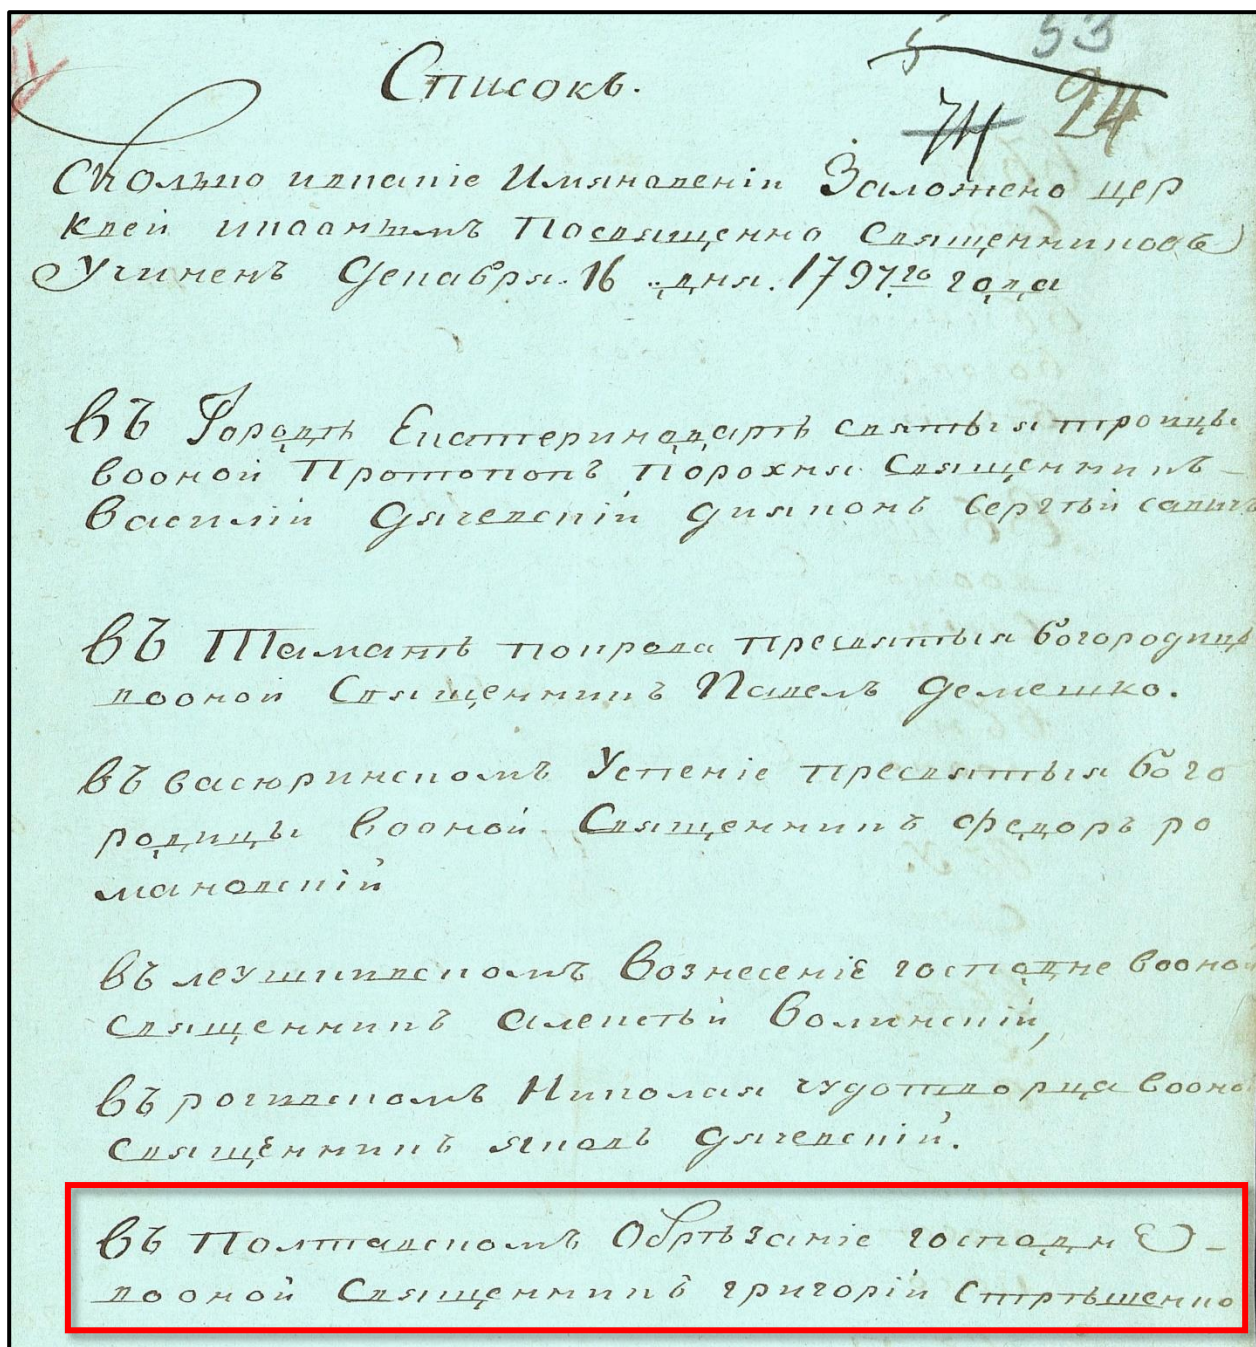 5 53
74 24
Списокъ.
Сколько икпаніе Имянованеніи Заложено цер
квей икоанымъ Посвященно Священниковъ
Учиненъ Декабря. 16 дня. 1797го года
Въ Городѣ Екатеринадарѣ святыя троицы
вооной Протопопъ Порохня Священникъ
Василій Дячевскій Дияконъ Сергѣй савичъ
Въ Таманѣ покрова пресвятыя богородицы
вооной Священникъ Павелъ Демешко.
въ васюринскомъ Успеніе пресвятыя бого
родицы вооной Священникъ Федоръ ро
мановскій
въ леушкивскомъ Вознесеніе господне вооной
священникъ алексѣй Волинскій,
въ рогивскомъ Николая чудотворца вооной
священникъ яковъ Дячевскій.
въ Полтавскомъ Обрѣзаніе господнЕ
вооной Священникъ григорій Стрѣшенко